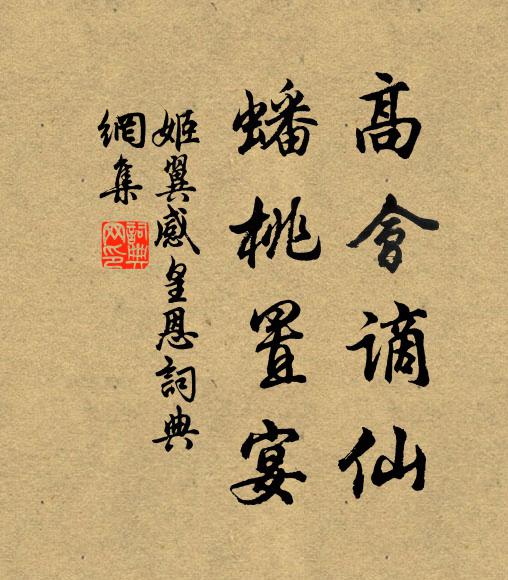 高會謫仙
蟠桃置宴
姬翼感皇恩詞典
網集
詞典
网印